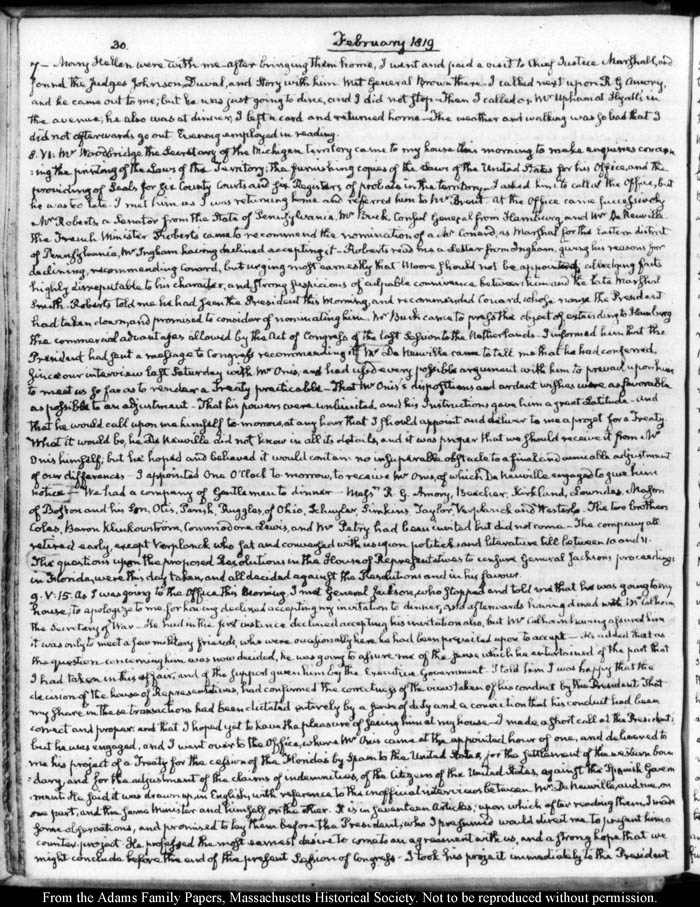 30.
February 1819
7 — Mary Hellen were with me after bringing them home, I went and paid a visit to Chief Justice Marshall, and
found the Judges Johnson, Duval, and Story with him. Met General Brown there. I called next upon R. G. Amory,
and he came out to me; but he was just going to dine, and I did not stop. Then I called on Mr Upham at Hyatt's in
the avenue; he also was at dinner; I left a card and returned home — The weather and walking was so bad that I
did not afterwards go out. Evening employed in reading.
8. VI: Mr Woodbridge the Secretary of the Michigan Territory came to my house this morning to make enquiries concern
:ing the printing of the Laws of the Territory; the furnishing copies of the Laws of the United States for his Office, and the
providing of Seals for six County Courts and six Registers of probate in the territory — I asked him to call at the Office, but
he was so late I met him as I was returning home and referred him to Mr Brent. At the Office came successively
Mr Roberts a Senator from the State of Pennsylvania, Mr Buck Consul General from Hamburg, and Mr De Neuville
the French Minister. Roberts came to recommend the nomination of a Mr Conard, as Marshal for the Eastern district
of Pennsylvania, Mr Ingham having declined accepting it — Roberts read me a letter from Ingham, giving his reasons for
declining, recommending Conard, but urging most earnestly that Moore should not be appointed, alledging facts
highly disreputable to his character, and strong suspicions of culpable connivance between him and the late Marshal
Smith. Roberts told me he had seen the President this Morning, and recommended Conard, whose name the President
had taken down, and promised to consider of nominating him. Mr Buck came to press the object of extending to Hamburg
the commercial advantages allowed by the Act of Congress of the last Session to the Netherlands — I informed him that the
President had sent a message to Congress recommending it. Mr De Neuville came to tell me that he had conferred,
since our interview last Saturday with Mr Onis, and had used every possible argument with him to prevail upon him
to meet us so far as to render a Treaty practicable — That Mr Onis's dispositions and ardent wishes were as favorable
as possible to an adjustment — That his powers were unlimited, and his Instructions gave him a great Latitude — and
that he would call upon me himself to-morrow, at any hour that I should appoint and deliver to me a projet for a Treaty.
What it would be, he De Neuville did not know in all its details, and it was proper that we should receive it from Mr
Onis himself; but he hoped and believed it would contain no insuperable obstacle to a final and amicable adjustment
of our differences — I appointed One O'Clock to morrow, to receive Mr Onis, of which De Neuville engaged to give him
notice — We had a company of Gentlemen to dinner — Messrs R. G. Amory, Beecher, Kirkland, Lowndes, Mason
of Boston and his Son, Otis, Parish, Ruggles, of Ohio, Schuyler, Simkins, Taylor, Verplanck and Westerlo — The two brothers
Coles, Baron Klinkowström, Commodore Lewis, and Mr Petry had been invited but did not come — The company all
retired early, except Verplanck who sat and conversed with us upon politicks and literature till between 10 and 11.
The questions upon the proposed Resolutions in the House of Representatives to censure General Jackson's proceedings
in Florida, were this day taken, and all decided against the Resolutions and in his favour.
9. V: 15. As I was going to the Office this Morning, I met General Jackson, who stopped and told me that he was going to my
house, to apologize to me for having declined accepting my invitation to dinner, and afterwards having dined with Mr Calhoun
the Secretary of War — He had in the first instance declined accepting his invitation also, but Mr Calhoun having assured him
it was only to meet a few military friends, who were occasionally here, he had been prevailed upon to accept — He added that as
the question concerning him was now decided, he was going to assure me of the sense which he entertained of the part that
I had taken in his affair, and of the support given him by the Executive Government. I told him I was happy that the
decision of the house of Representatives, had confirmed the correctness of the view taken of his conduct by the President. That
my share in these transactions had been dictated entirely by a sense of duty and a conviction that his conduct had been
correct and proper: and that I hoped yet to have the pleasure of seeing him at my house — I made a short call at the President's
but he was engaged, and I went over to the Office, where Mr Onis came at the appointed hour of one, and delivered to
me his project of a Treaty for the cession of the Floridas by Spain to the United States, for the settlement of the western boun
:dary, and for the adjustment of the claims of indemnities, of the citizens of the United States, against the Spanish Govern
:ment. He said it was drawn up in English, with reference to the unofficial interviews between Mr De Neuville, and me, on
one part, and the same Minister and himself on the other. It is in seventeen Articles, upon which after reading them, I made
some observations, and promised to lay them before the President, who I presumed would direct me to present him a
counter-project. He professed the most earnest desire to come to an agreement with us, and a strong hope that we
might conclude before the end of the present Session of Congress — I took his project immediately to the President
From the Adams Family Papers, Massachusetts Historical Society. Not to be reproduced without permission.